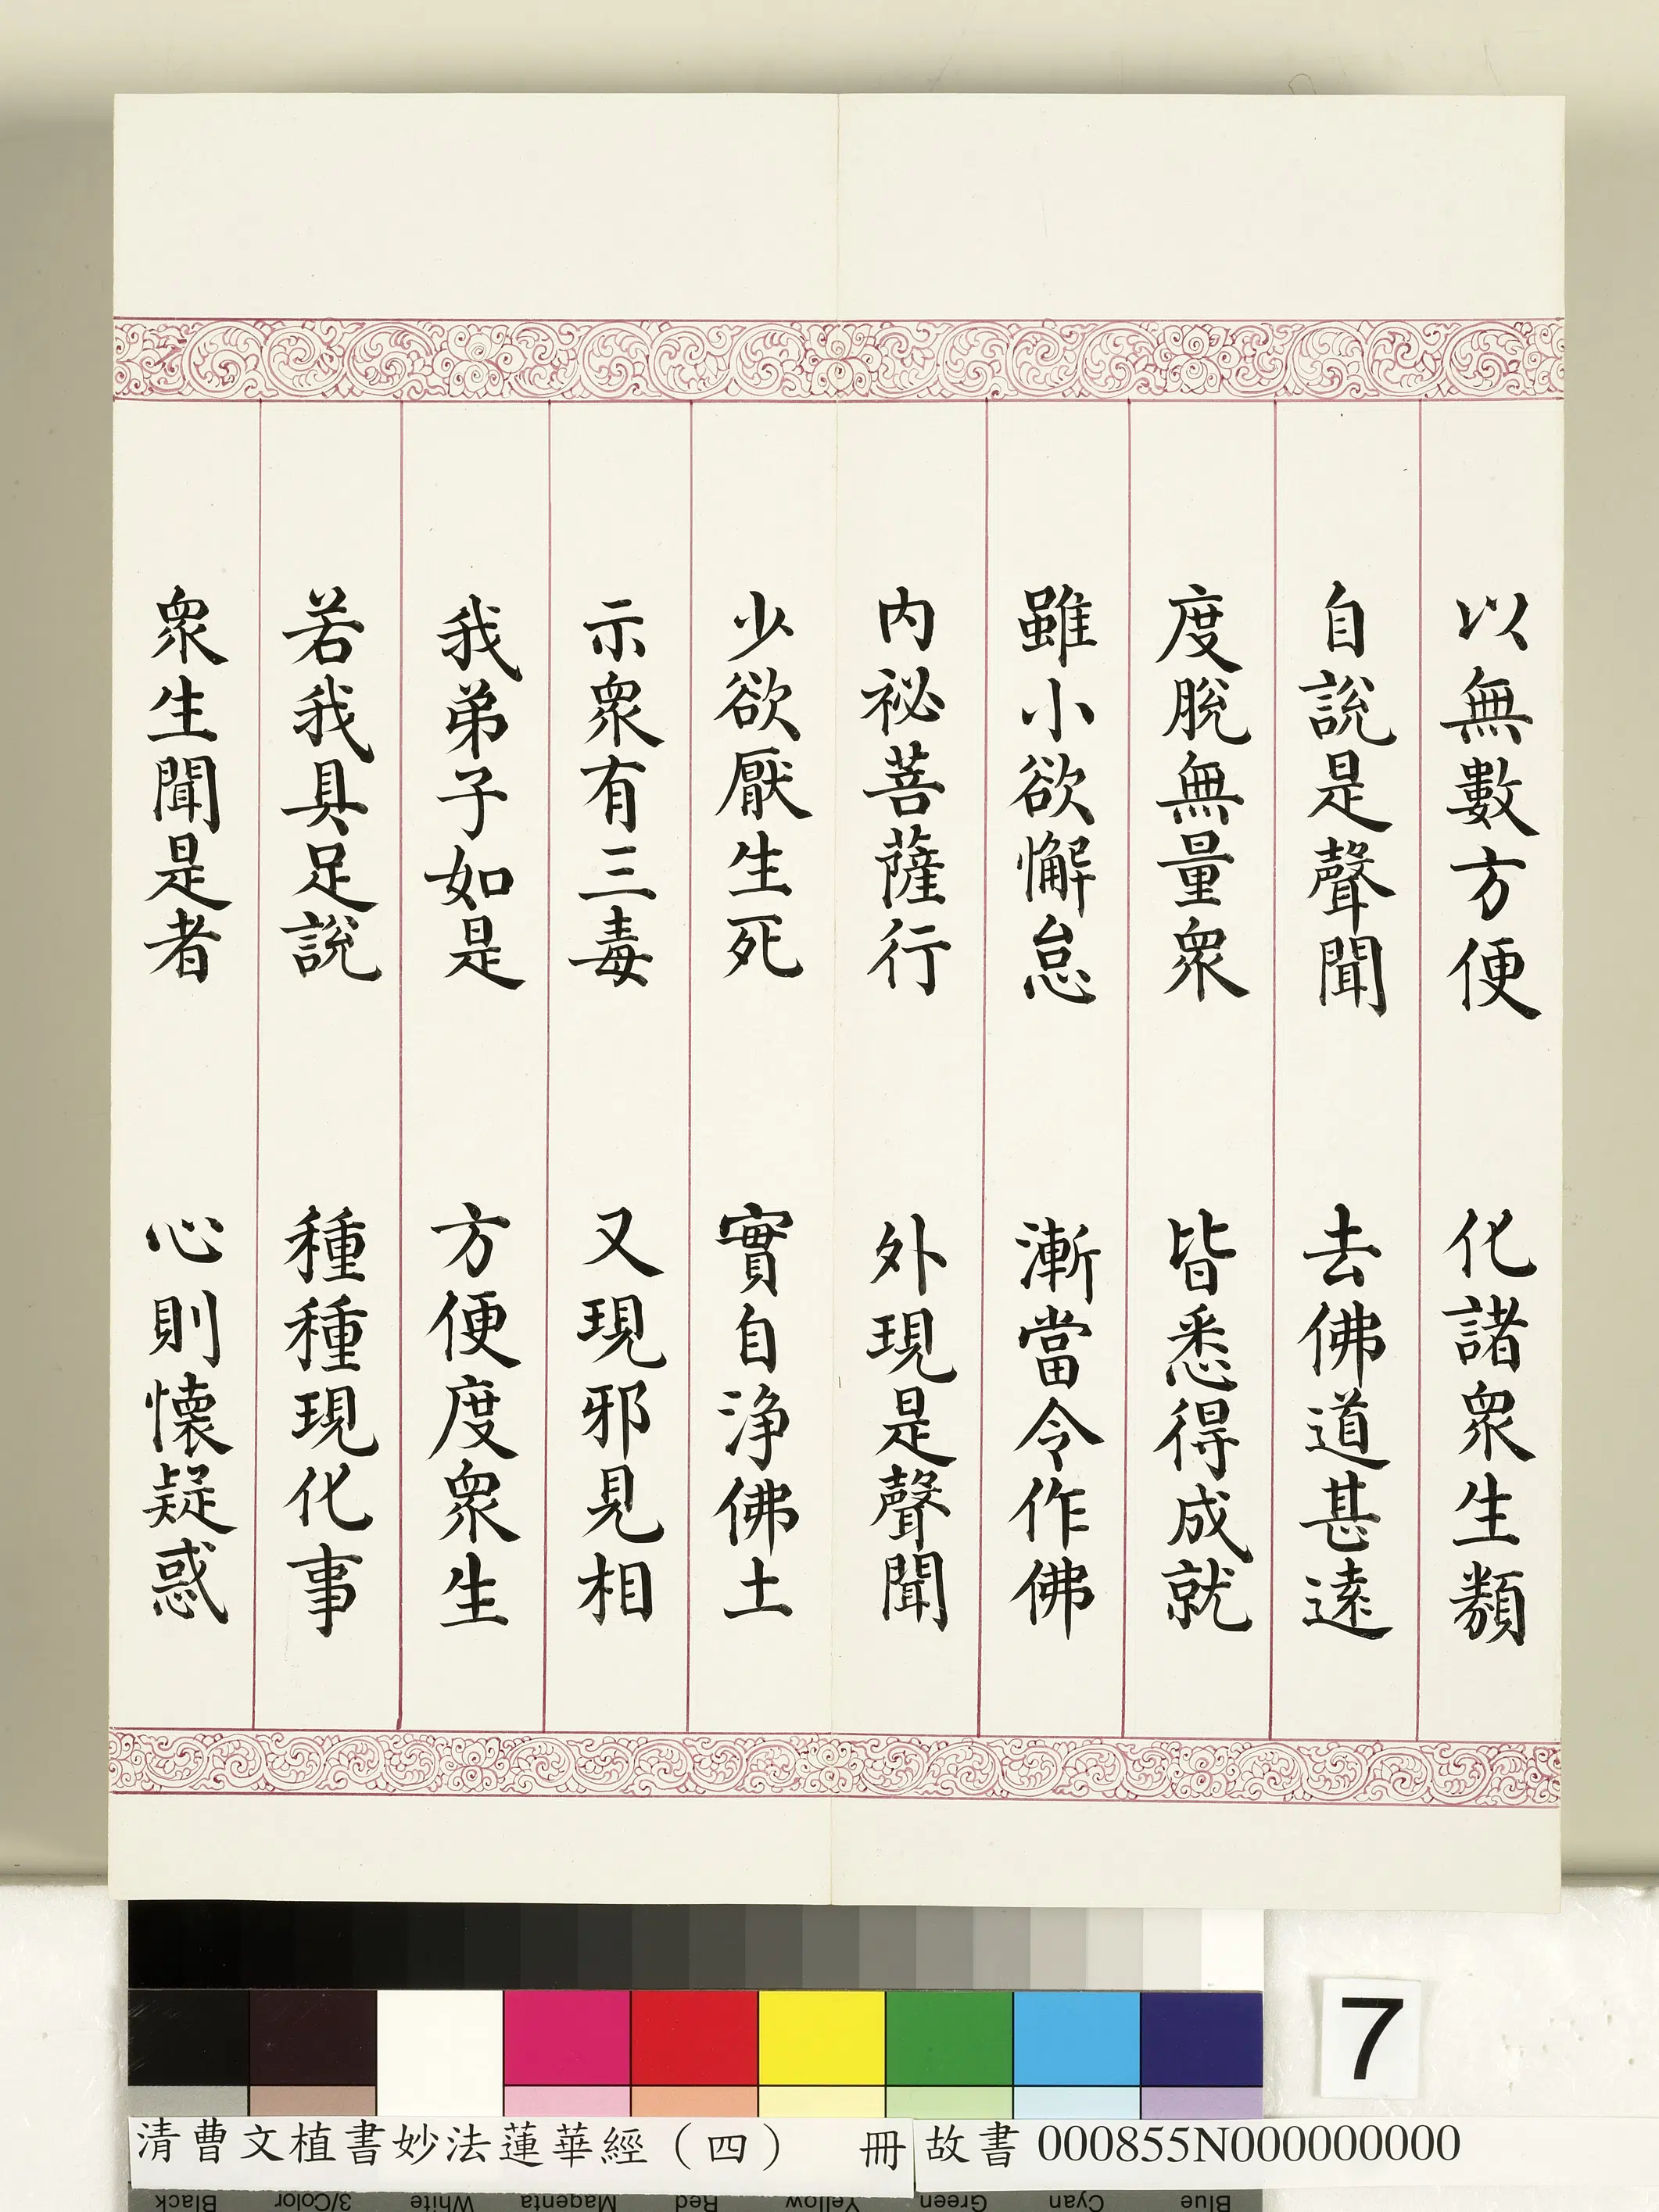 以無數方便　化諸衆生類
自説是聲聞　去佛道甚遠
度脫無量衆　皆悉得成就
雖小欲懈怠　漸當令作佛
内祕菩薩行　外現是聲聞
少欲厭生死　實自淨佛土
示衆有三毒　又現邪見相
我弟子如是　方便度衆生
若我具足説　種種現化事
衆生聞是者　心則懷疑惑
7
清曹文植書妙法蓮華經（四）　冊
故書 000855N000000000
Black 3/Color White Magenta Red Yellow Green Cyan Blue